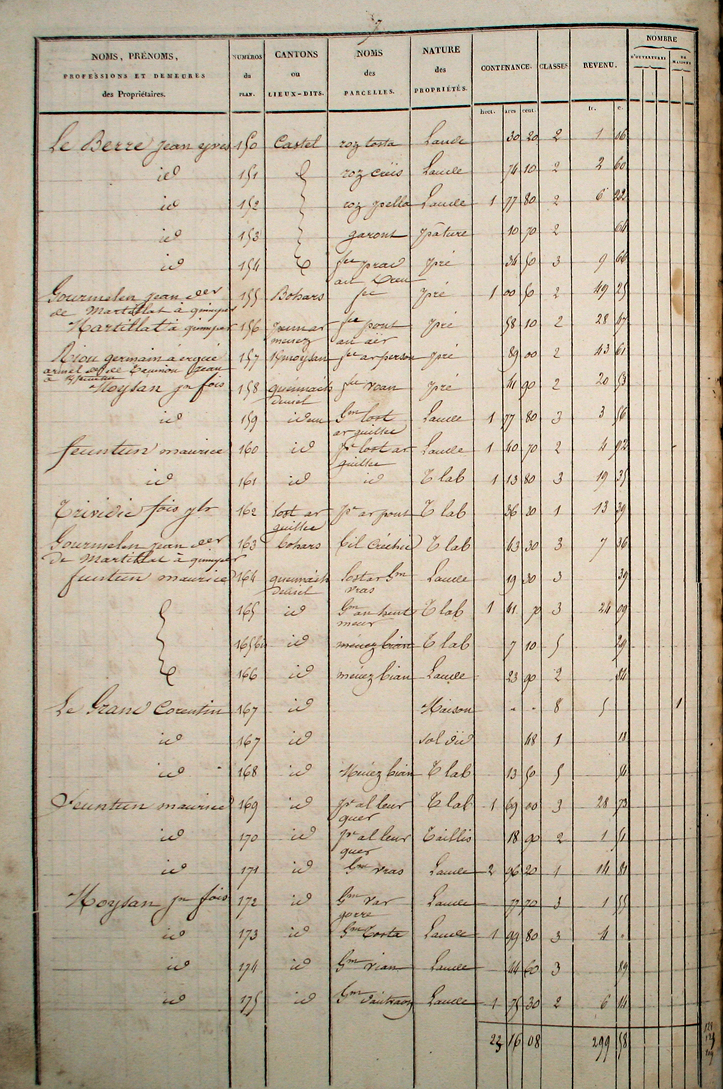 NOMS, PRÉNOMS, PROFESSIONS ET DEMEURES des Propriétaires. NUMÉROS du PLAN. CANTONS ou LIEUX-DITS. NOMS des PARCELLES. NATURE des PROPRIÉTÉS. CONTENANCE. CLASSES REVENU. NOMBRE D'OUVERTURES DE MAISONS
hect. ares cent. fr. c.
Le Berre jean yves 150 Castel roz tosta Lande 30 20 2 1 06
id 151 roz creis Lande 74 10 2 2 60
id 152 roz pella Lande 1 77 80 2 6 22
id 153 garont pâture 10 70 2 64
id 154 fec prad pré 34 50 3 9 66
Gourmelen jean 155 Bohars pré 1 00 50 2 49 25
de Martillat à quimper
Martillat à quimper 156 pont pré 58 10 2 28 47
Riou germain à ergué 157 moysan ar person pré 89 00 2 43 61
armel
Moysan jn fois 158 vian pré 41 90 2 20 53
id 159 idem Gm lost Lande 1 77 80 3 3 56
ar guillec
feunteun maurice 160 id lost ar Lande 1 40 70 2 4 92
guillec
id 161 id id T lab 1 13 80 3 19 35
Trividic fois 162 Lost ar ar pont T lab 36 20 1 13 39
guillec
Gourmelen jean 163 bohars T lab 43 30 3 7 36
de Martillat à quimper
feunteun maurice 164 lost ar Gm Lande 19 30 3 39
vras
165 id Gm an hent T lab 1 41 70 3 24 09
meur
165bis id ménez bian T lab 7 10 5 29
166 id ménez bian Lande 23 90 2 84
Le Grand Corentin 167 id Maison - - 8 5 1
id 167 id sol dud 48 1
id 168 id Ménez bian T lab 13 50 5 54
Feunteun maurice 169 id al leur T lab 1 69 00 3 28 73
quer
id 170 id al leur Taillis 18 90 2 1 51
quer
id 171 id Gm vras Lande 2 96 20 1 14 81
Moysan jn fois 172 id Gm var Lande 77 70 3 1 55
gorre
id 173 id Gm tosta Lande 1 99 80 3 4 -
id 174 id Gm vian Lande 44 60 3 89
id 175 id Gm Lande 1 75 30 2 6 14
23 16 08 299 58